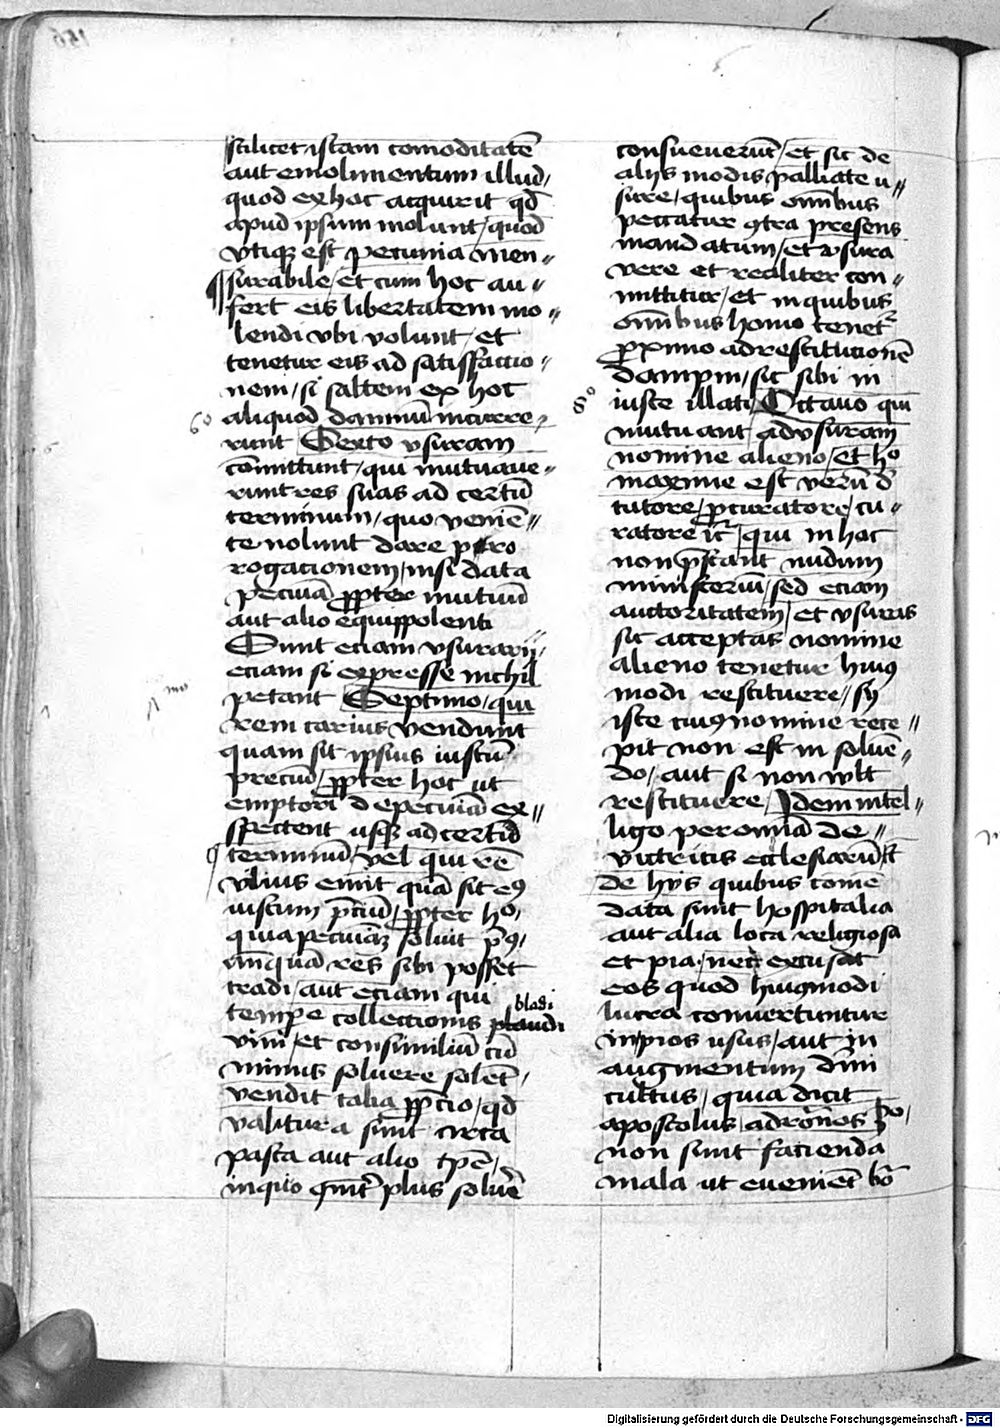 scilicet istam comoditatē
aut emolimentum illud /
quod ex hoc acquirit qd̄
apud ipsum molunt / quod
vtiqꝫ est pecunia men //
surabile / et cum hoc au //
fert eis libertatem mo //
lendi vbi volunt / et
tenetur eis ad satisfactio //
nem / si saltem ex hoc
aliquod damnū incurre //
runt Sexto vsuram
6º
cōmittunt / qui mutuaue //
runt res suas ad certū
terminum / quo veniē //
te nolunt dare pro
rogacionem / nisi data
pecuniā ꝓpter mutuū
aut alio equippolenti
Sunt eciam vsurarij /
eciam si expresse nichil
petant Septimo / qui
7mo
rem carius vendunt
quam sit ipsius iustū
preciū / ꝓpter hoc ut
emptori de pecuniā ex //
spectent usqꝫ ad certū
terminū / vel qui rē
vilius emit quā sit eꝰ
iustum p̄ciū / ꝓpter hº /
quia pecuniā soluit pꝰ /
anquā res sibi posset
tradi / aut eciam qui
tempore collectionis bladi
vini / et consimiliū cū
minus soluere solet /
vendit talia p̄cio / qd̄
valitura sunt circa
pasca aut alio tp̄e /
in quo cōit̄ plus soluē
consueuerūt / et sic de
alijs modis palliate u //
sure / quibus om̄ibus
peccatur ꝯtra presens
mandatum / et vsura
vere et realiter con //
mittitur / et in quibus
om̄ibus homo tenet᷑
ꝓximo ad restitucionē
dampni / sic sibi in
iuste illati Octauo qui
8º
mutuant ad vsuram
nomine alieno / et hº
maxime est verū d̄
tutore / ꝓcuratore / cu //
ratore ic̄ / qui in hac
non p̄stant nudum
ministeriū / sed eciam
auctoritatem / et vsuras
sic acceptas nomine
alieno tenetur huiꝰ
modi restituere // sy
iste cuiꝰ nomine rece //
pit non est in soluē //
do / aut si non wlt
restituere / Idem intel //
ligo per omnia de //
vitricis ecclesiarū / et
de hijs quibus come
data sunt hospitalia
aut alia loca religiosa
et pia / nec excusat
eos quod huiꝰmodi
lucra conuertuntur
in pios usus / aut in
augmentum diuini
cultus / quia dicit
apostolus / ad romanos 3º /
non sunt facienda
mala ut eueniēt bōa
Digitalisierung gefördert durch die Deutsche Forschungsgemeinschaft - DFG